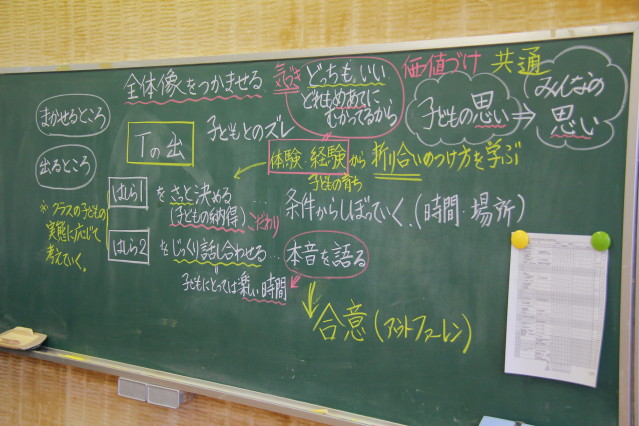 全体像をつかませる
気づき
どっちも、いい
どれもめあてに、
むかってるから
価値づけ
共通
子どもの思い
⇒
みんなの
思い
まかせるところ
出るところ
Tの出
子どもとのズレ
体験 経験から折り合いのつけ方を学ぶ
子どもの育ち
はしら1 をさっと決める…
(子どもの納得)
こだわり
条件からしぼっていく.(時間・場所)
※クラスの子どもの
実態に応じて
考えていく。
はしら2 をじっくり話し合わせる…
本音を語る
子どもにとっては楽しい時間
合意(アウトファーレン)